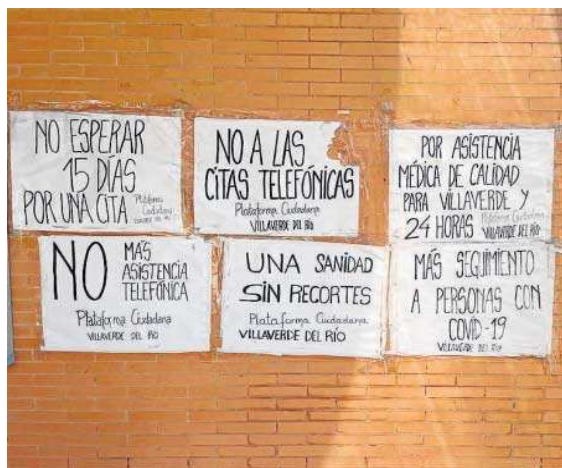 NO ESPERAR
15 DÍAS
POR UNA CITA
Plataforma
Ciudadana
NO A LAS
CITAS TELEFÓNICAS
Plataforma Ciudadana
VILLAVERDE DEL RÍO
POR ASISTENCIA
MÉDICA DE CALIDAD
PARA VILLAVERDE Y
24 HORAS
Plataforma Ciudadana
VILLAVERDE DEL RÍO
NO MÁS
ASISTENCIA
TELEFÓNICA
Plataforma Ciudadana
VILLAVERDE DEL RIO
UNA SANIDAD
SIN RECORTES
Plataforma Ciudadana
VILLAVERDE DEL RÍO
MÁS SEGUIMIENTO
A PERSONAS CON
COVID-19
VILLAVERDE DEL RÍO